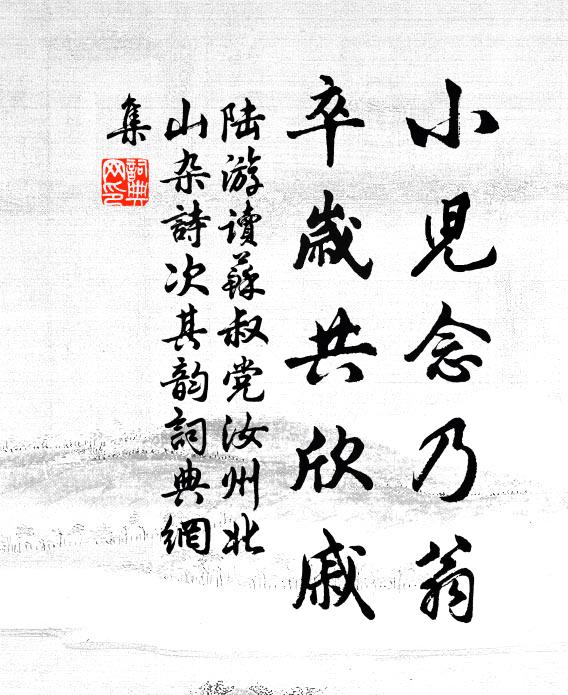 小児念乃翁
卒歳共欣戚
陆游读蘇叔党汝州北
山杂詩次其韵詞典網
集
詞典
网印